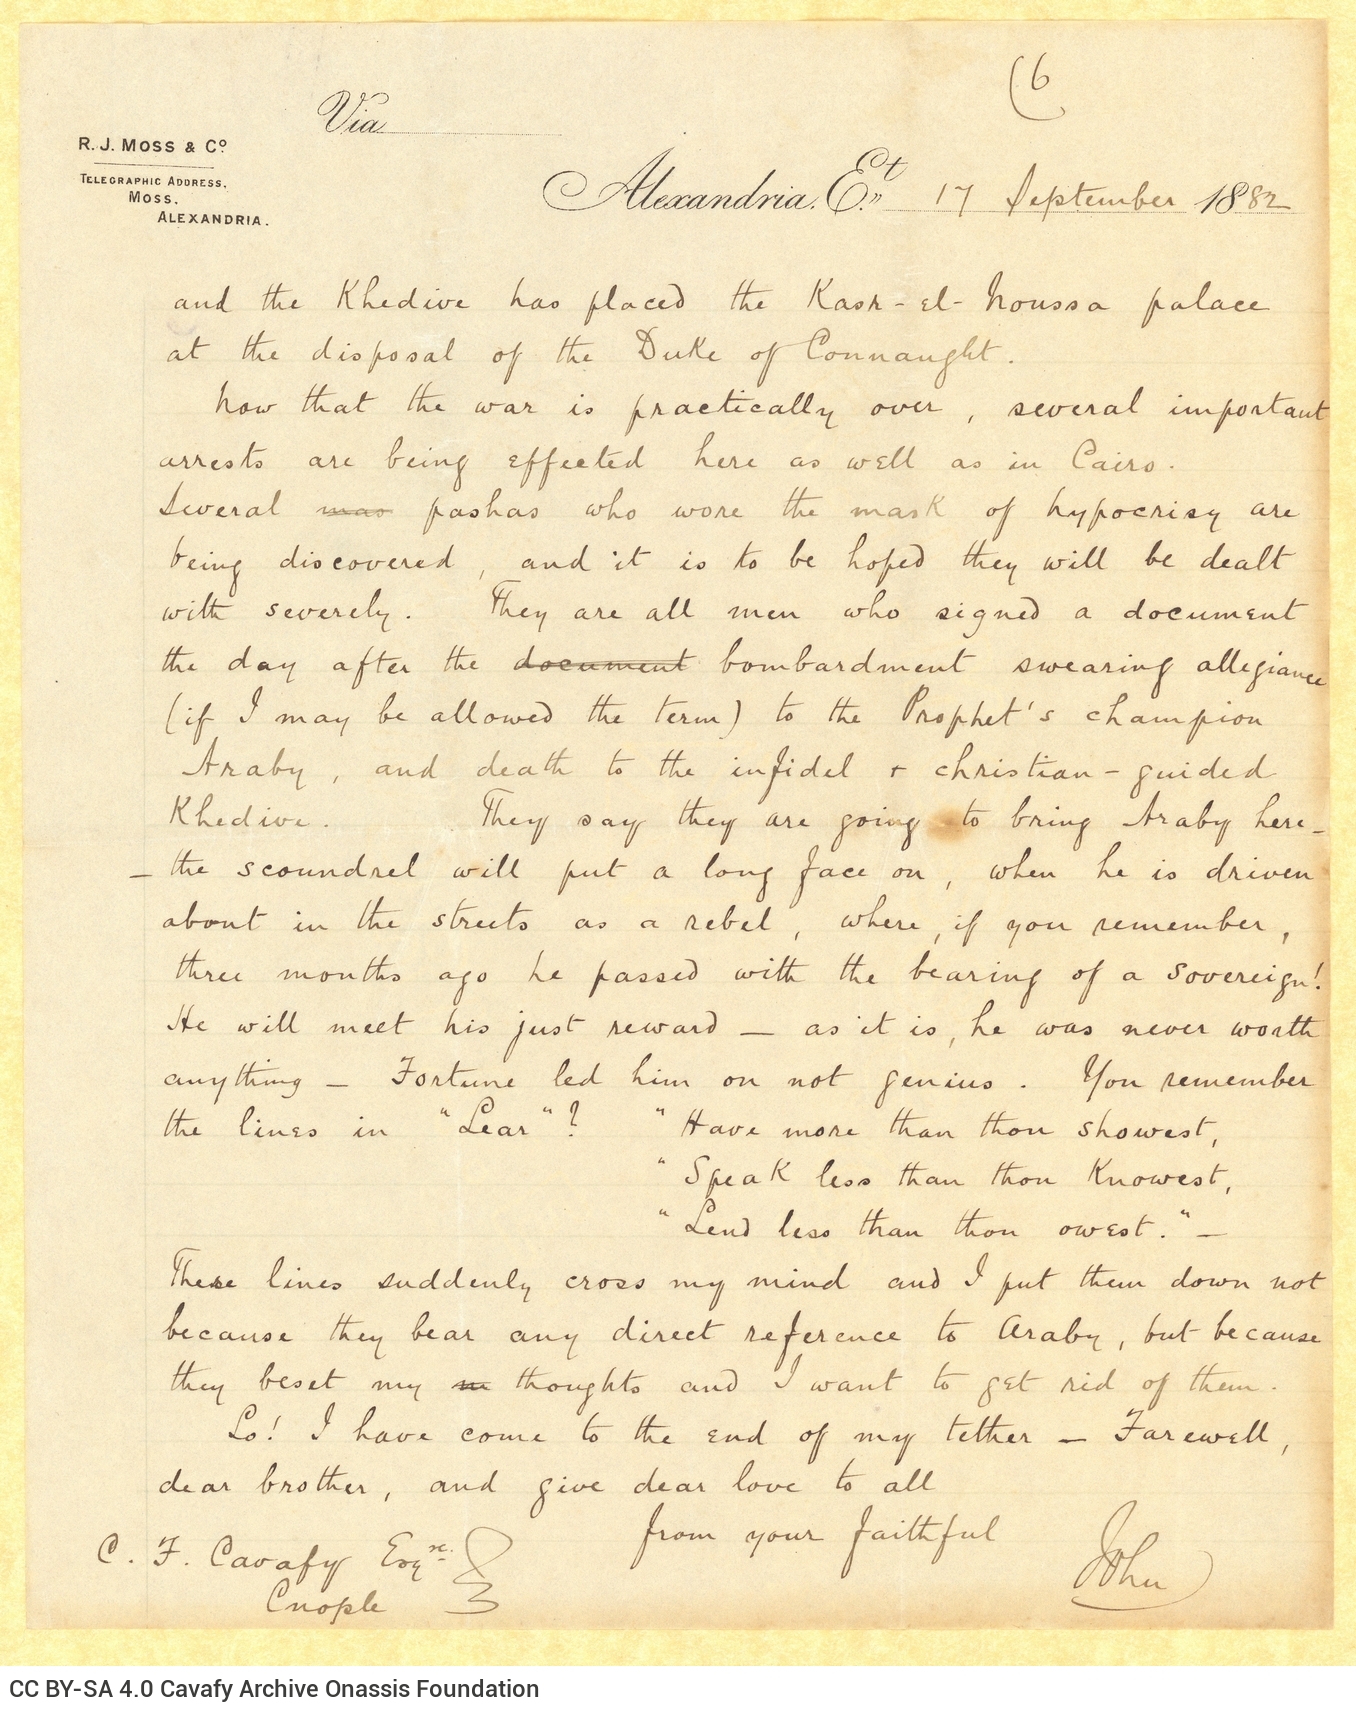 (6
Via
R. J. MOSS & Cº
TELEGRAPHIC ADDRESS.
MOSS.
ALEXANDRIA.
Alexandria. Et. 17 September 1882
and the Khedive has placed the Kasr-el-Noussa palace
at the disposal of the Duke of Connaught.
Now that the war is practically over, several important
arrests are being effected here as well as in Cairo.
Several mas pashas who wore the mask of hypocrisy are
being discovered, and it is to be hoped they will be dealt
with severely. They are all men who signed a document
the day after the document bombardment swearing allegiance
(if I may be allowed the term) to the Prophet's champion
Araby, and death to the infidel + christian-guided
Khedive. They say they are going to bring Araby here_
_ the scoundrel will put a long face on, when he is driven
about in the streets as a rebel, where, if you remember,
three months ago he passed with the bearing of a sovereign!
He will meet his just reward — as it is, he was never worth
anything — Fortune led him on not genius. You remember
the lines in "Lear"? "Have more than thou showest,
"Speak less than thou knowest,
"Lend less than thou owest." —
These lines suddenly cross my mind and I put them down not
because they bear any direct reference to Araby, but because
they beset my m thoughts and I want to get rid of them.
Lo! I have come to the end of my tether — Farewell,
dear brother, and give dear love to all
from your faithful
John
C. F. Cavafy Esqre.
Cnople
CC BY-SA 4.0 Cavafy Archive Onassis Foundation